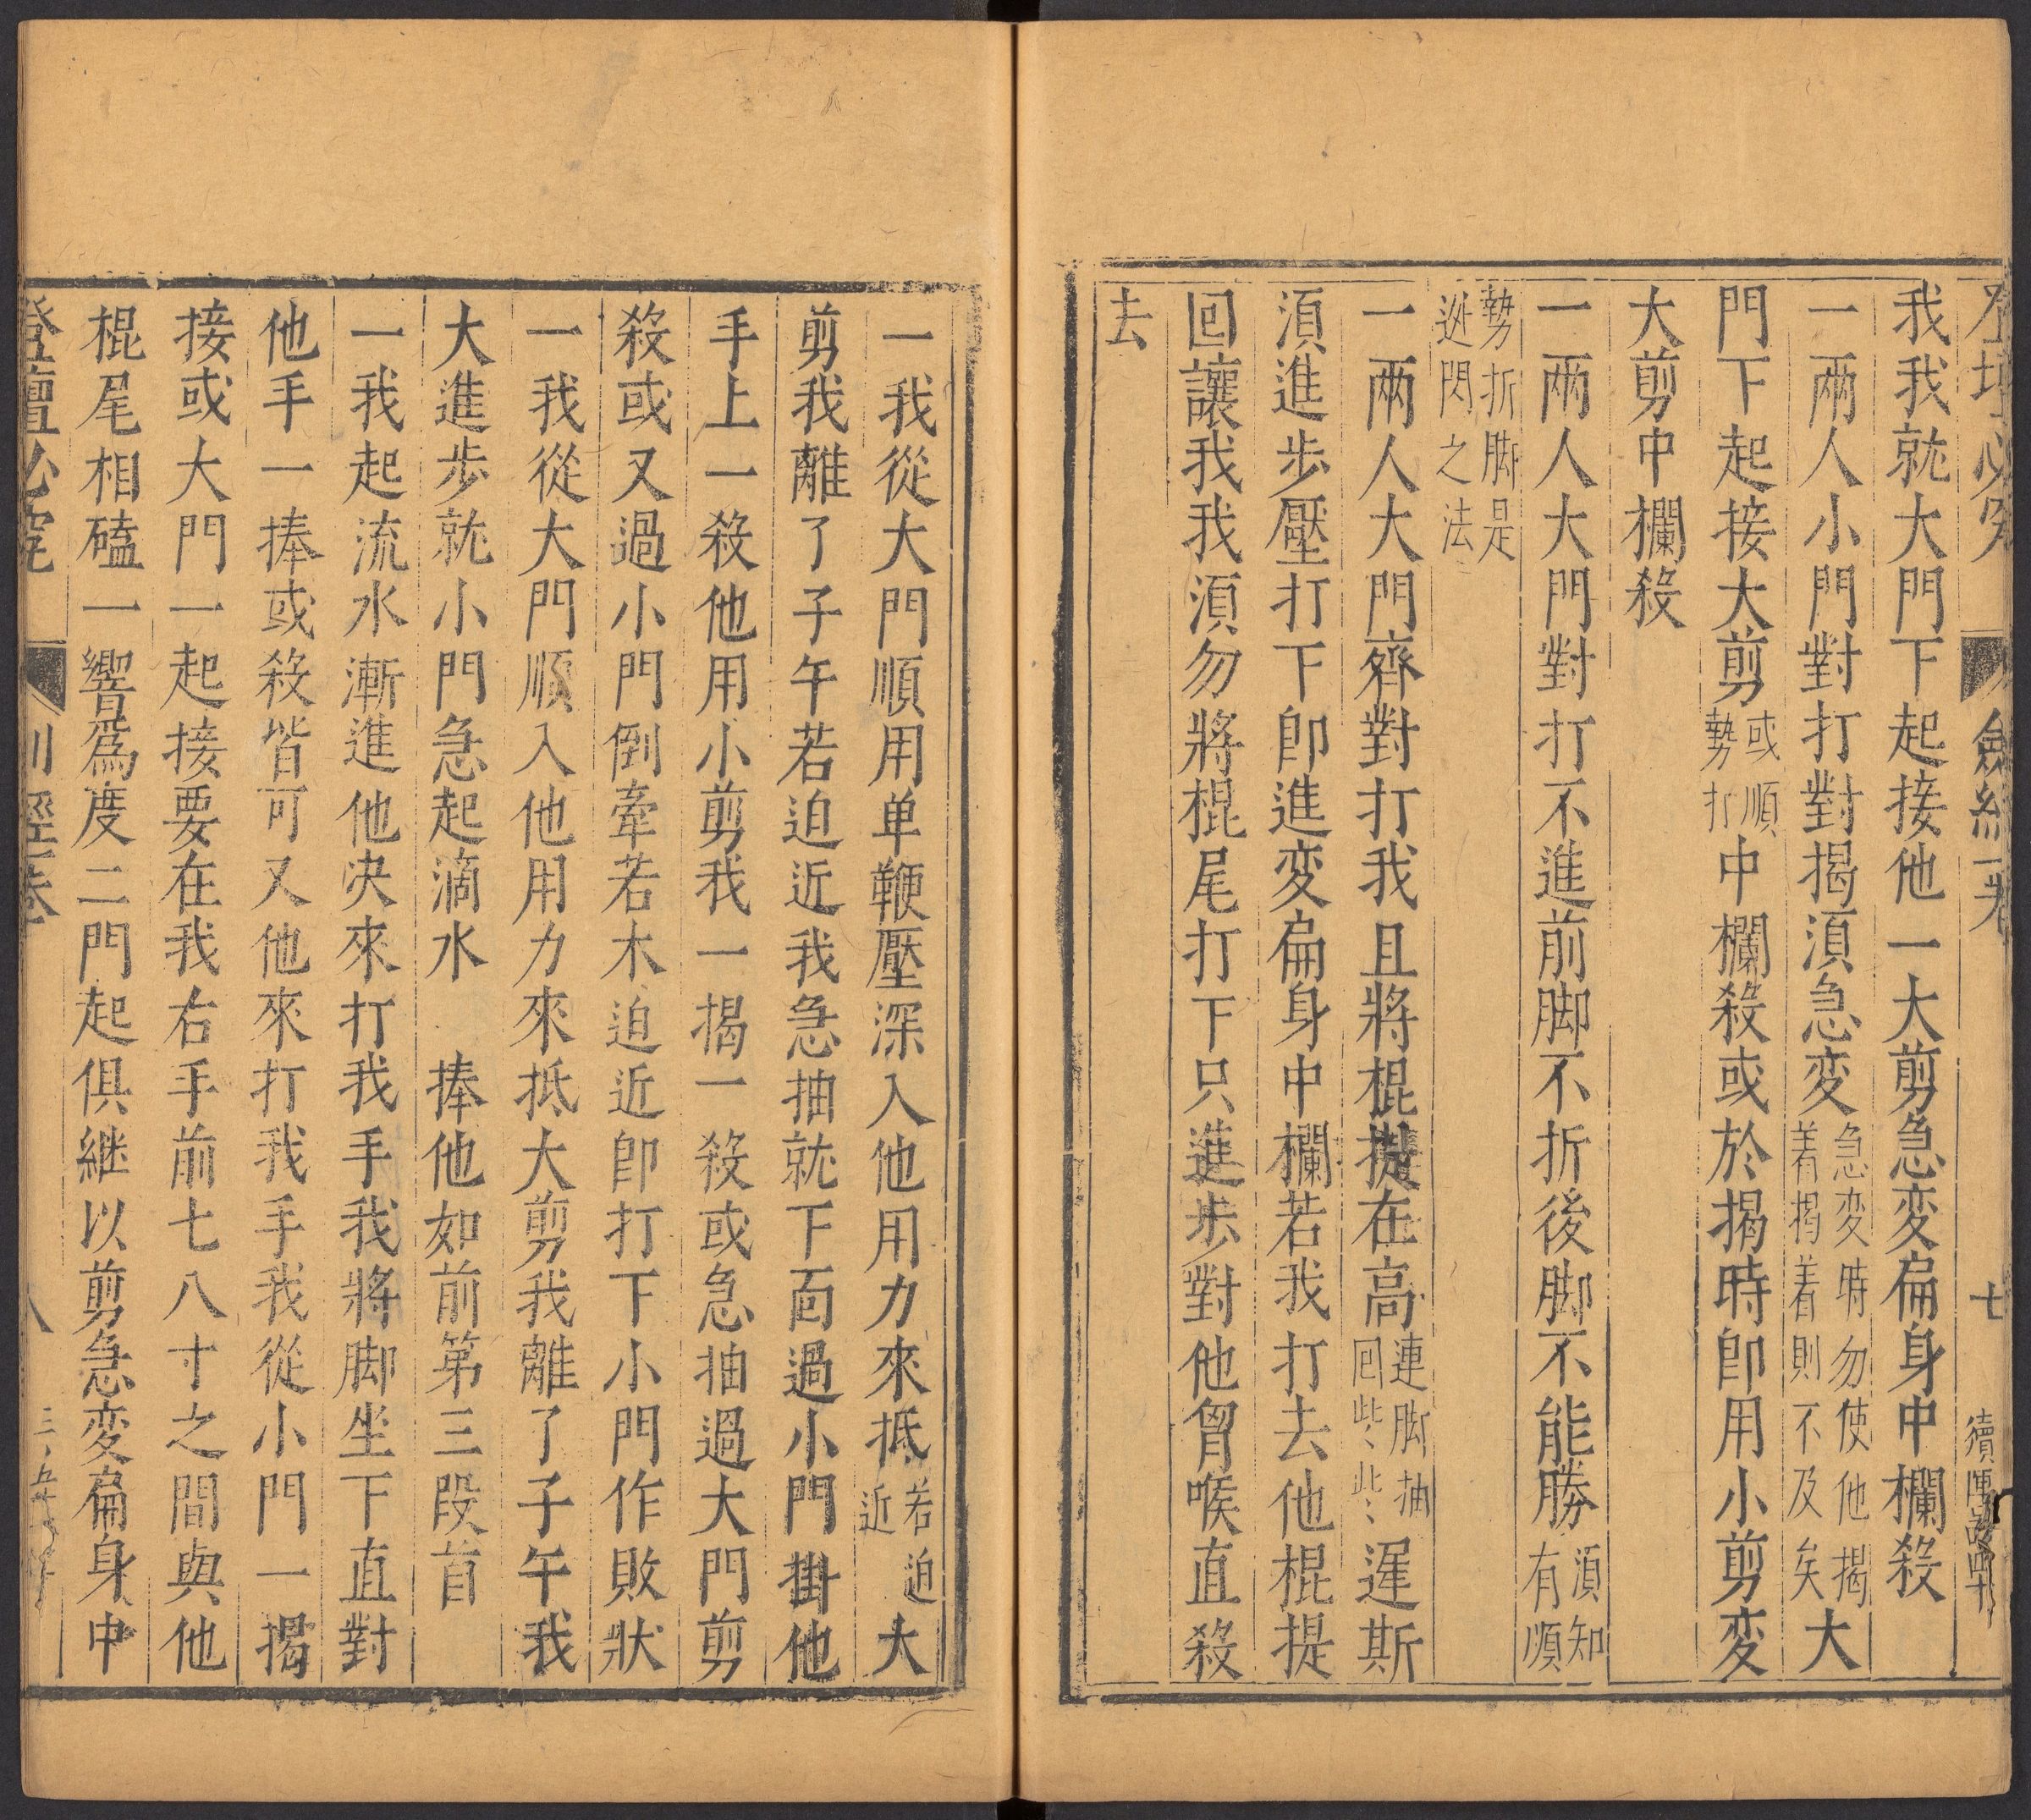 我我就大門下起接他一大剪急変扁身中欄殺
一兩人小門對打對揭湏急変急変時勿使他揭着揭着則不及矣大
門下起接大剪或順勢打中欄殺或於揭時即用小剪変
大剪中欄殺
一兩人大門對打不進前脚不折後脚不能勝湏知有順
勢折脚是迯閃之法
一兩人大門齊對打我且將棍提在高連脚抽囘些〻此〻遲斯
湏進步壓打下即進変扁身中欄若我打去他棍提
囘讓我我湏勿將棍尾打下只進步對他胷喉直殺
去
一我從大門順用单鞭壓深入他用力來抵若迫近大
剪我離了子午若迫近我急抽就下面過小門掛他
手上一殺他用小剪我一揭一殺或急抽過大門剪
殺或又過小門倒牽若木迫近即打下小門作敗狀
一我從大門順入他用力來抵大剪我離了子午我
大進步就小門急起滴水　捧他如前第三段首
一我起流水漸進他决來打我手我將脚坐下直對
他手一捧或殺皆可又他來打我手我從小門一揭
接或大門一起接要在我右手前七八寸之間與他
棍尾相磕一響爲度二門起俱継以剪急変扁身中
登壇必究